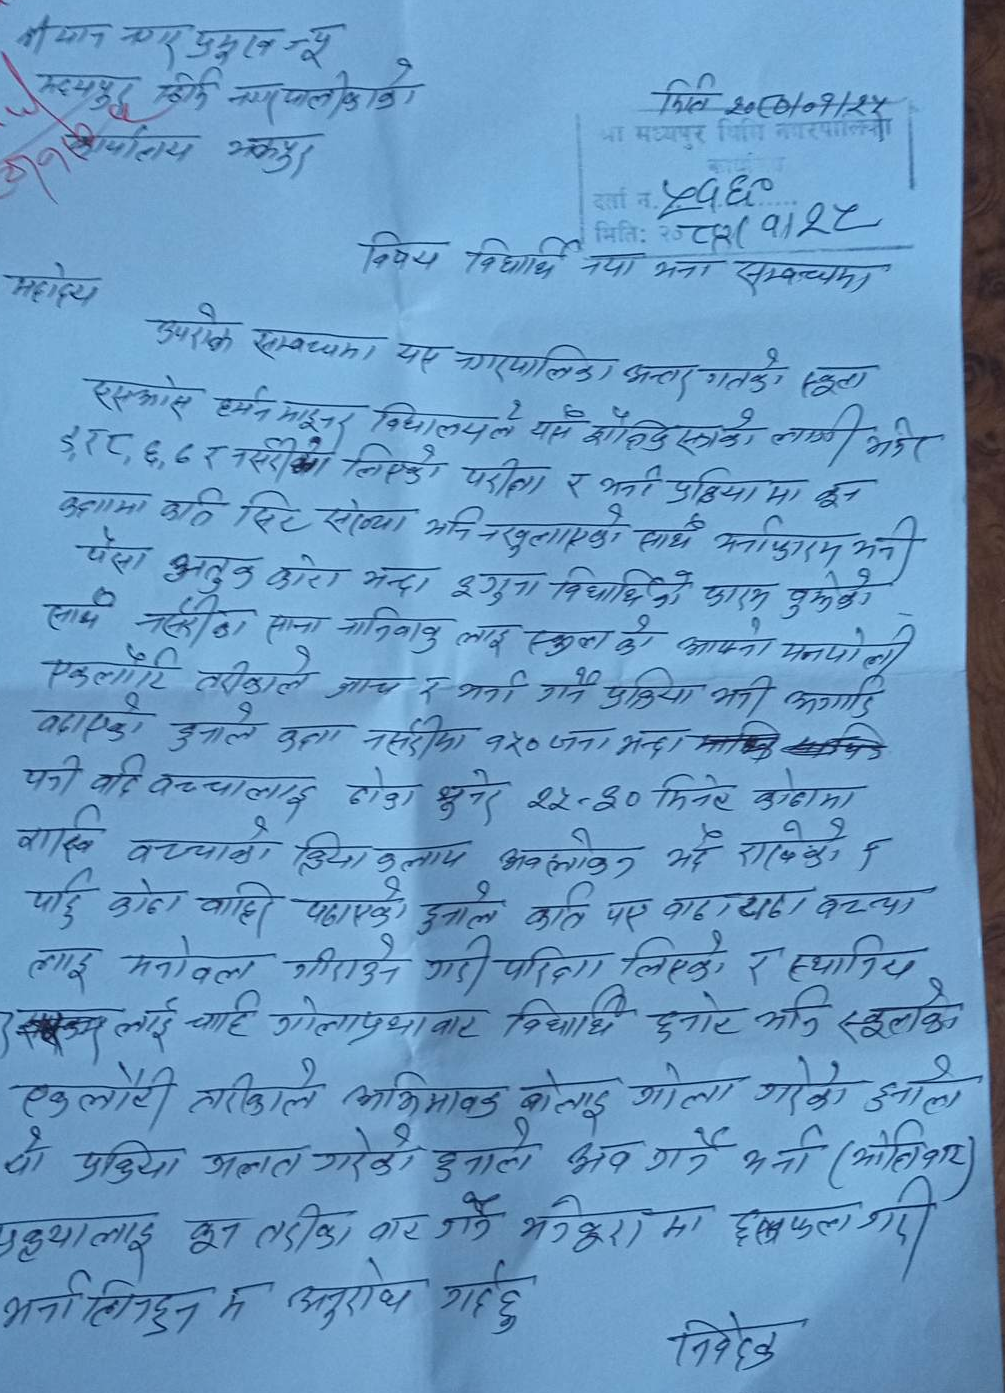 श्रीमान नगर प्रमुख ज्यू
मध्यपुर थिमि नगरपालीकाको
कार्यालय भक्तपुर
मिति २०८०/०१/२५
मध्यपुर थिमि नगरपालिका
दर्ता न.
मिति: २०
विषय विद्यार्थि नया भर्ना सम्बन्धमा
महोदय
उपरोक्त सम्बन्धमा यस नगरपालिका अन्तरगतको स्कूल
हर्मन माइनर विद्यालयले यस शैक्षिक सत्रको लागी भनेर
र नर्सरीको लिएको परीक्षा र भर्ना प्रक्रिया मा कुन
कक्षामा कति सिट संख्या भनि नखुलाएको साथै भर्नाफारम भनी
पैसा असुल कोटा भन्दा ३ गुना विद्यार्थिको फारम बुझेको
साथै नर्सरीका साना नानिबाबु लाइ स्कूल को आफ्नो मनपरी
एकलौटि तरीकाले जाच र भर्ना गर्ने प्रक्रिया भनी अगाडि
बढाएको हुनाले कक्षा नर्सरीमा १५० जना भन्दा
पनी बढि बच्चालाइ ढोका थुनेर २५-३० मिनेट कोठामा
राखि बच्चाको क्रियाकलाप अवलोकन गर्दै राखेको र
पछि कोठा बाहिर पठाएको हुनाले कति पय बच्चा
लाइ मनोबल गीराउने गरी परिक्षा लिएको र स्थानिय
लाई चाहि गोलाप्रथाबाट विद्यार्थि छनोट भनि स्कूलको
एकलौटी तरीकाले अभिभावक बोलाइ गोला गरेको हुनाले
यो प्रक्रिया गलत गरेको हुनाले अब गर्ने भर्ना
लाइ कुन तरीका बाट गर्ने भन्ने कुरा मा छलफल गरी
भर्ना लिनहुन म अनुरोध गर्दछु
निवेदक